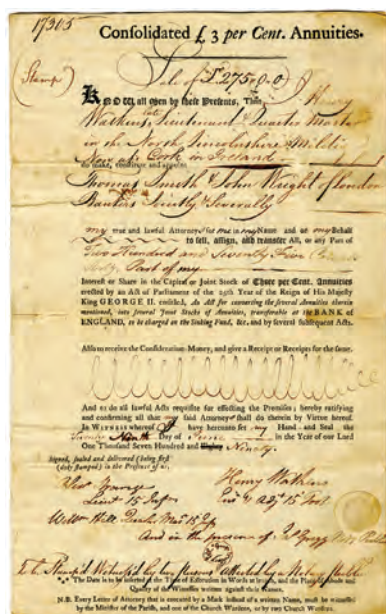 17905
Consolidated £ 3 per Cent. Annuities.
(Stamp)
Sale of £275.0.0
KNOW all Men by these Presents, That I Henry
Watkins late Lieutenant & Quarter Master
in the North Lincolnshire Militia
Now at Cork in Ireland
do make, constitute and appoint
Thomas Smith & John Wright of London
Bankers Jointly & Severally
my true and lawful Attorney for me in my Name and on my Behalf
to sell, assign, and transfer All, or any Part of
Two Hundred and Seventy Five Pounds
Part of my
Interest or Share in the Capital or Joint Stock of Three per Cent. Annuities
erected by an Act of Parliament of the 25th Year of the Reign of His Majesty
King GEORGE II. entitled, An Act for converting the several Annuities therein
mentioned, into several Joint Stocks of Annuities, transferable at the BANK of
ENGLAND, to be charged on the Sinking Fund, &c. and by several subsequent Acts.
Also to receive the Consideration-Money, and give a Receipt or Receipts for the same.
And to do all lawful Acts requisite for effecting the Premises; hereby ratifying
and confirming all that my said Attorney shall do therein by Virtue hereof.
In WITNESS whereof I have hereunto set my Hand and Seal the
Ninth Day of June in the Year of our Lord
One Thousand Seven Hundred and Eighty Ninety.
Signed, sealed and delivered (being first
(duly stamped) in the Presence of us,
Henry Watkins
George
Lieut 15
15 Foot
Willm Hill Quarter Mas 15
And in the presence of Gregg
The Date is to be inserted at the Time of Execution in Words at length, and the Place of Abode and
Quality of the Witnesses written against their Names.
N.B. Every Letter of Attorney that is executed by a Mark instead of a written Name, must be witnessed
by the Minister of the Parish, and one of the Church Wardens, or by two Church Wardens.